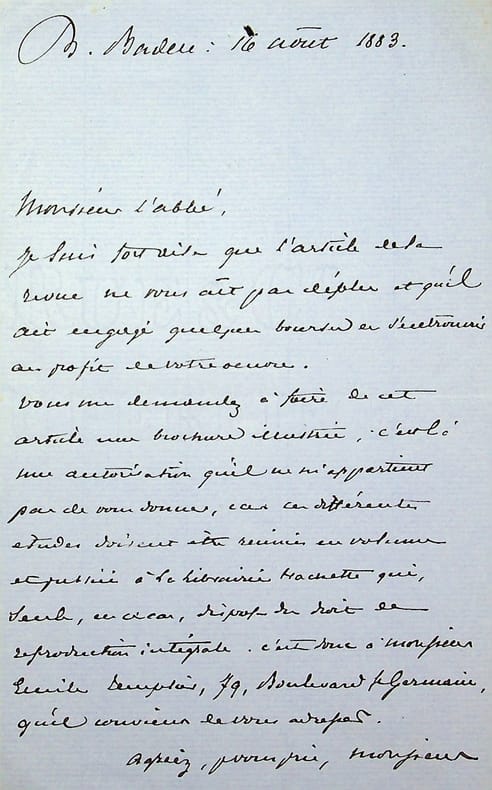 B. Baden : 16 août 1883.
Monsieur l'abbé,
Je suis fort aise que l'article de la
revue ne vous ait pas déplu et qu'il
ait engagé quelques bourses à s'entrouvrir
au profit de votre oeuvre.
Vous me demandez à faire de cet
article une brochure illustrée, c'est là
une autorisation qu'il ne m'appartient
pas de vous donner, car ces différentes
études doivent être réunies en volume
et publiées à la librairie Hachette qui,
seule, en ce cas, dispose du droit de
reproduction intégrale. C'est donc à monsieur
Emile Templier, 79, Boulevard St Germain,
qu'il convient de vous adresser.
Agréez, je vous prie, monsieur